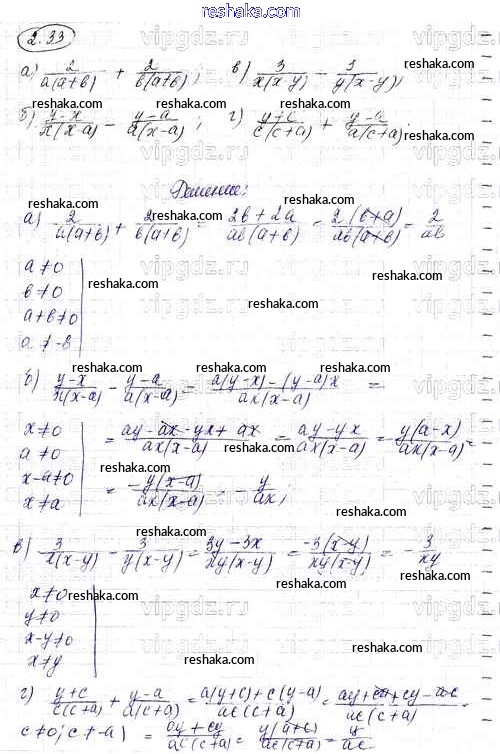 reshaka.com
2.33
а) 2/a(a+b) + 2/b(a+b); в) 3/x(x-y) - 3/y(x-y);
б) y-x/x(x-a) - y-a/a(x-a); г) y+c/c(c+a) + y-a/a(c+a).
Решение:
а) 2/a(a+b) + 2/b(a+b) = 2b+2a/ab(a+b) = 2(b+a)/ab(a+b) = 2/ab
a≠0
b≠0
a+b≠0
a≠-b
б) y-x/x(x-a) - y-a/a(x-a) = a(y-x)-(y-a)x/ax(x-a) =
x≠0 = ay-ax-yx+ax/ax(x-a) = ay-yx/ax(x-a) = y(a-x)/ax(x-a) =
a≠0
x-a≠0 = -y(x-a)/ax(x-a) - y/ax;
x≠a
в) 3/x(x-y) - 3/y(x-y) = 3y-3x/xy(x-y) = -3(x-y)/xy(x-y) = -3/xy
x≠0
y≠0
x-y≠0
x≠y
г) y+c/c(c+a) + y-a/a(c+a) = a(y+c)+c(y-a)/ac(c+a) = ay+ca+cy-ac/ac(c+a) =
c≠0; c≠-a) = ay+cy/ac(c+a) = y(a+c)/ac(c+a) = y/ac